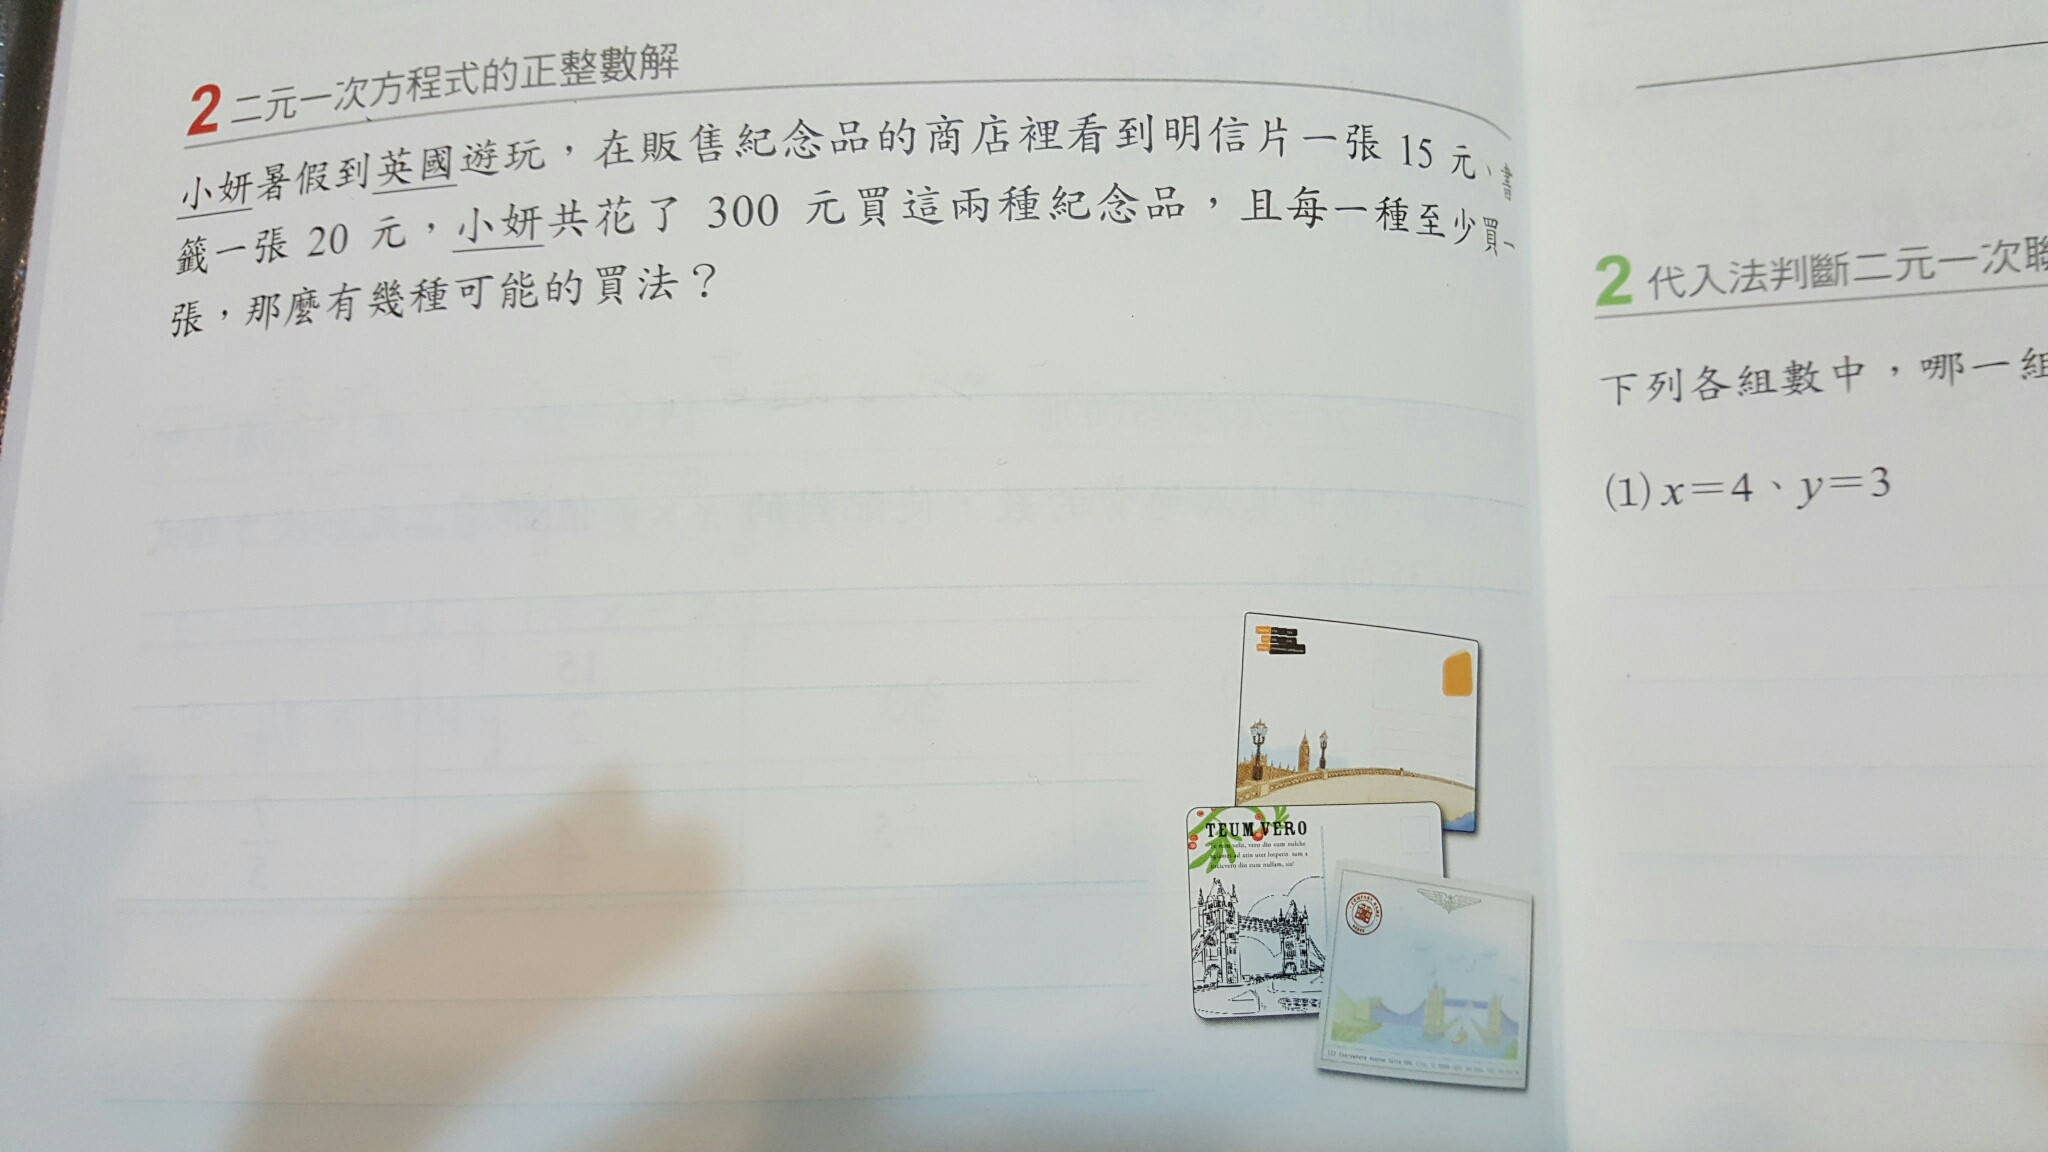 2 二元一次方程式的正整數解
小妍暑假到英國遊玩，在販售紀念品的商店裡看到明信片一張 15 元、書
籤一張 20 元，小妍共花了 300 元買這兩種紀念品，且每一種至少買一
張，那麼有幾種可能的買法？
TEUM VERO
2 代入法判斷二元一次聯
下列各組數中，哪一組
(1) x＝4、y＝3